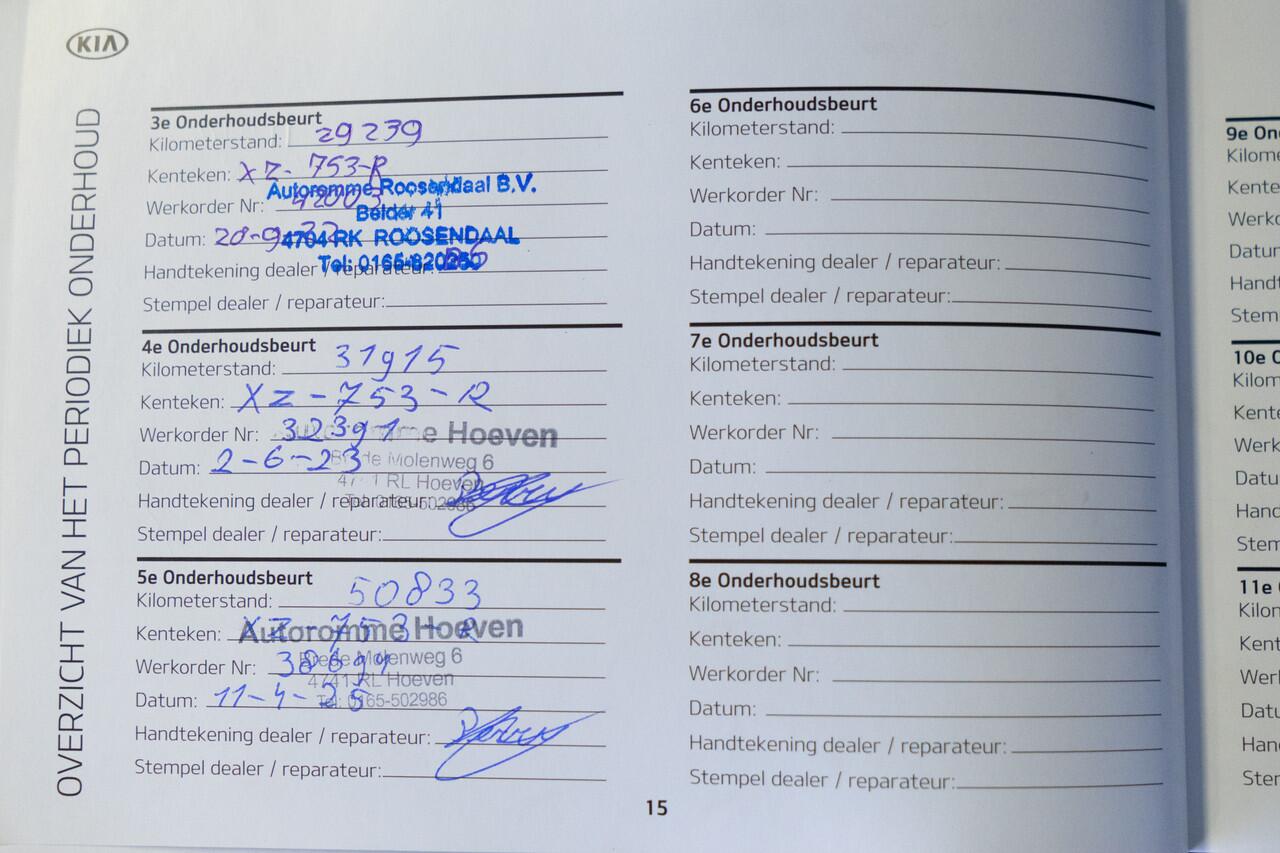 KIA
OVERZICHT VAN HET PERIODIEK ONDERHOUD
3e Onderhoudsbeurt
Kilometerstand: 29239
Kenteken: XZ-753-R
Autoromme Roosendaal B.V.
Werkorder Nr:
Belder 41
Datum: 20-9-22
4704 RK ROOSENDAAL
Handtekening dealer / reparateur:
Tel: 0165-820250
Stempel dealer / reparateur:
4e Onderhoudsbeurt
Kilometerstand: 31915
Kenteken: XZ-753-R
Werkorder Nr: 32391
Autoromme Hoeven
Datum: 2-6-23
Brede Molenweg 6
4741 RL Hoeven
Handtekening dealer / reparateur:
Tel: 0165-502986
Stempel dealer / reparateur:
5e Onderhoudsbeurt
Kilometerstand: 50833
Kenteken: XZ-753-R
Autoromme Hoeven
Werkorder Nr:
Brede Molenweg 6
4741 RL Hoeven
Datum: 11-4-25
Tel: 0165-502986
Handtekening dealer / reparateur:
Stempel dealer / reparateur:
6e Onderhoudsbeurt
Kilometerstand:
Kenteken:
Werkorder Nr:
Datum:
Handtekening dealer / reparateur:
Stempel dealer / reparateur:
7e Onderhoudsbeurt
Kilometerstand:
Kenteken:
Werkorder Nr:
Datum:
Handtekening dealer / reparateur:
Stempel dealer / reparateur:
8e Onderhoudsbeurt
Kilometerstand:
Kenteken:
Werkorder Nr:
Datum:
Handtekening dealer / reparateur:
Stempel dealer / reparateur:
15
9e On
Kilome
Kente
Werko
Datur
Handt
Stem
10e O
Kilom
Kente
Werk
Datu
Hand
Stem
11e
Kilon
Kent
Werl
Datu
Han
Ste